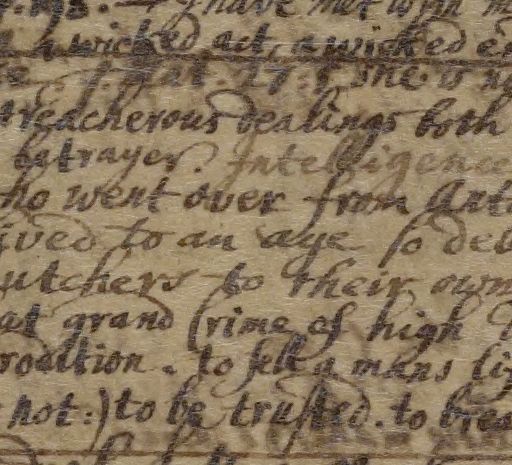 I have met with m
a wicked act, a wicked e
she is n
treacherous dealings both
betrayer. Intelligence
ho went over from Art
ived to an age so deb
utchers to their own
at grand Crime of high
rodition. to sell a mans li
not:) to be trusted. to brea